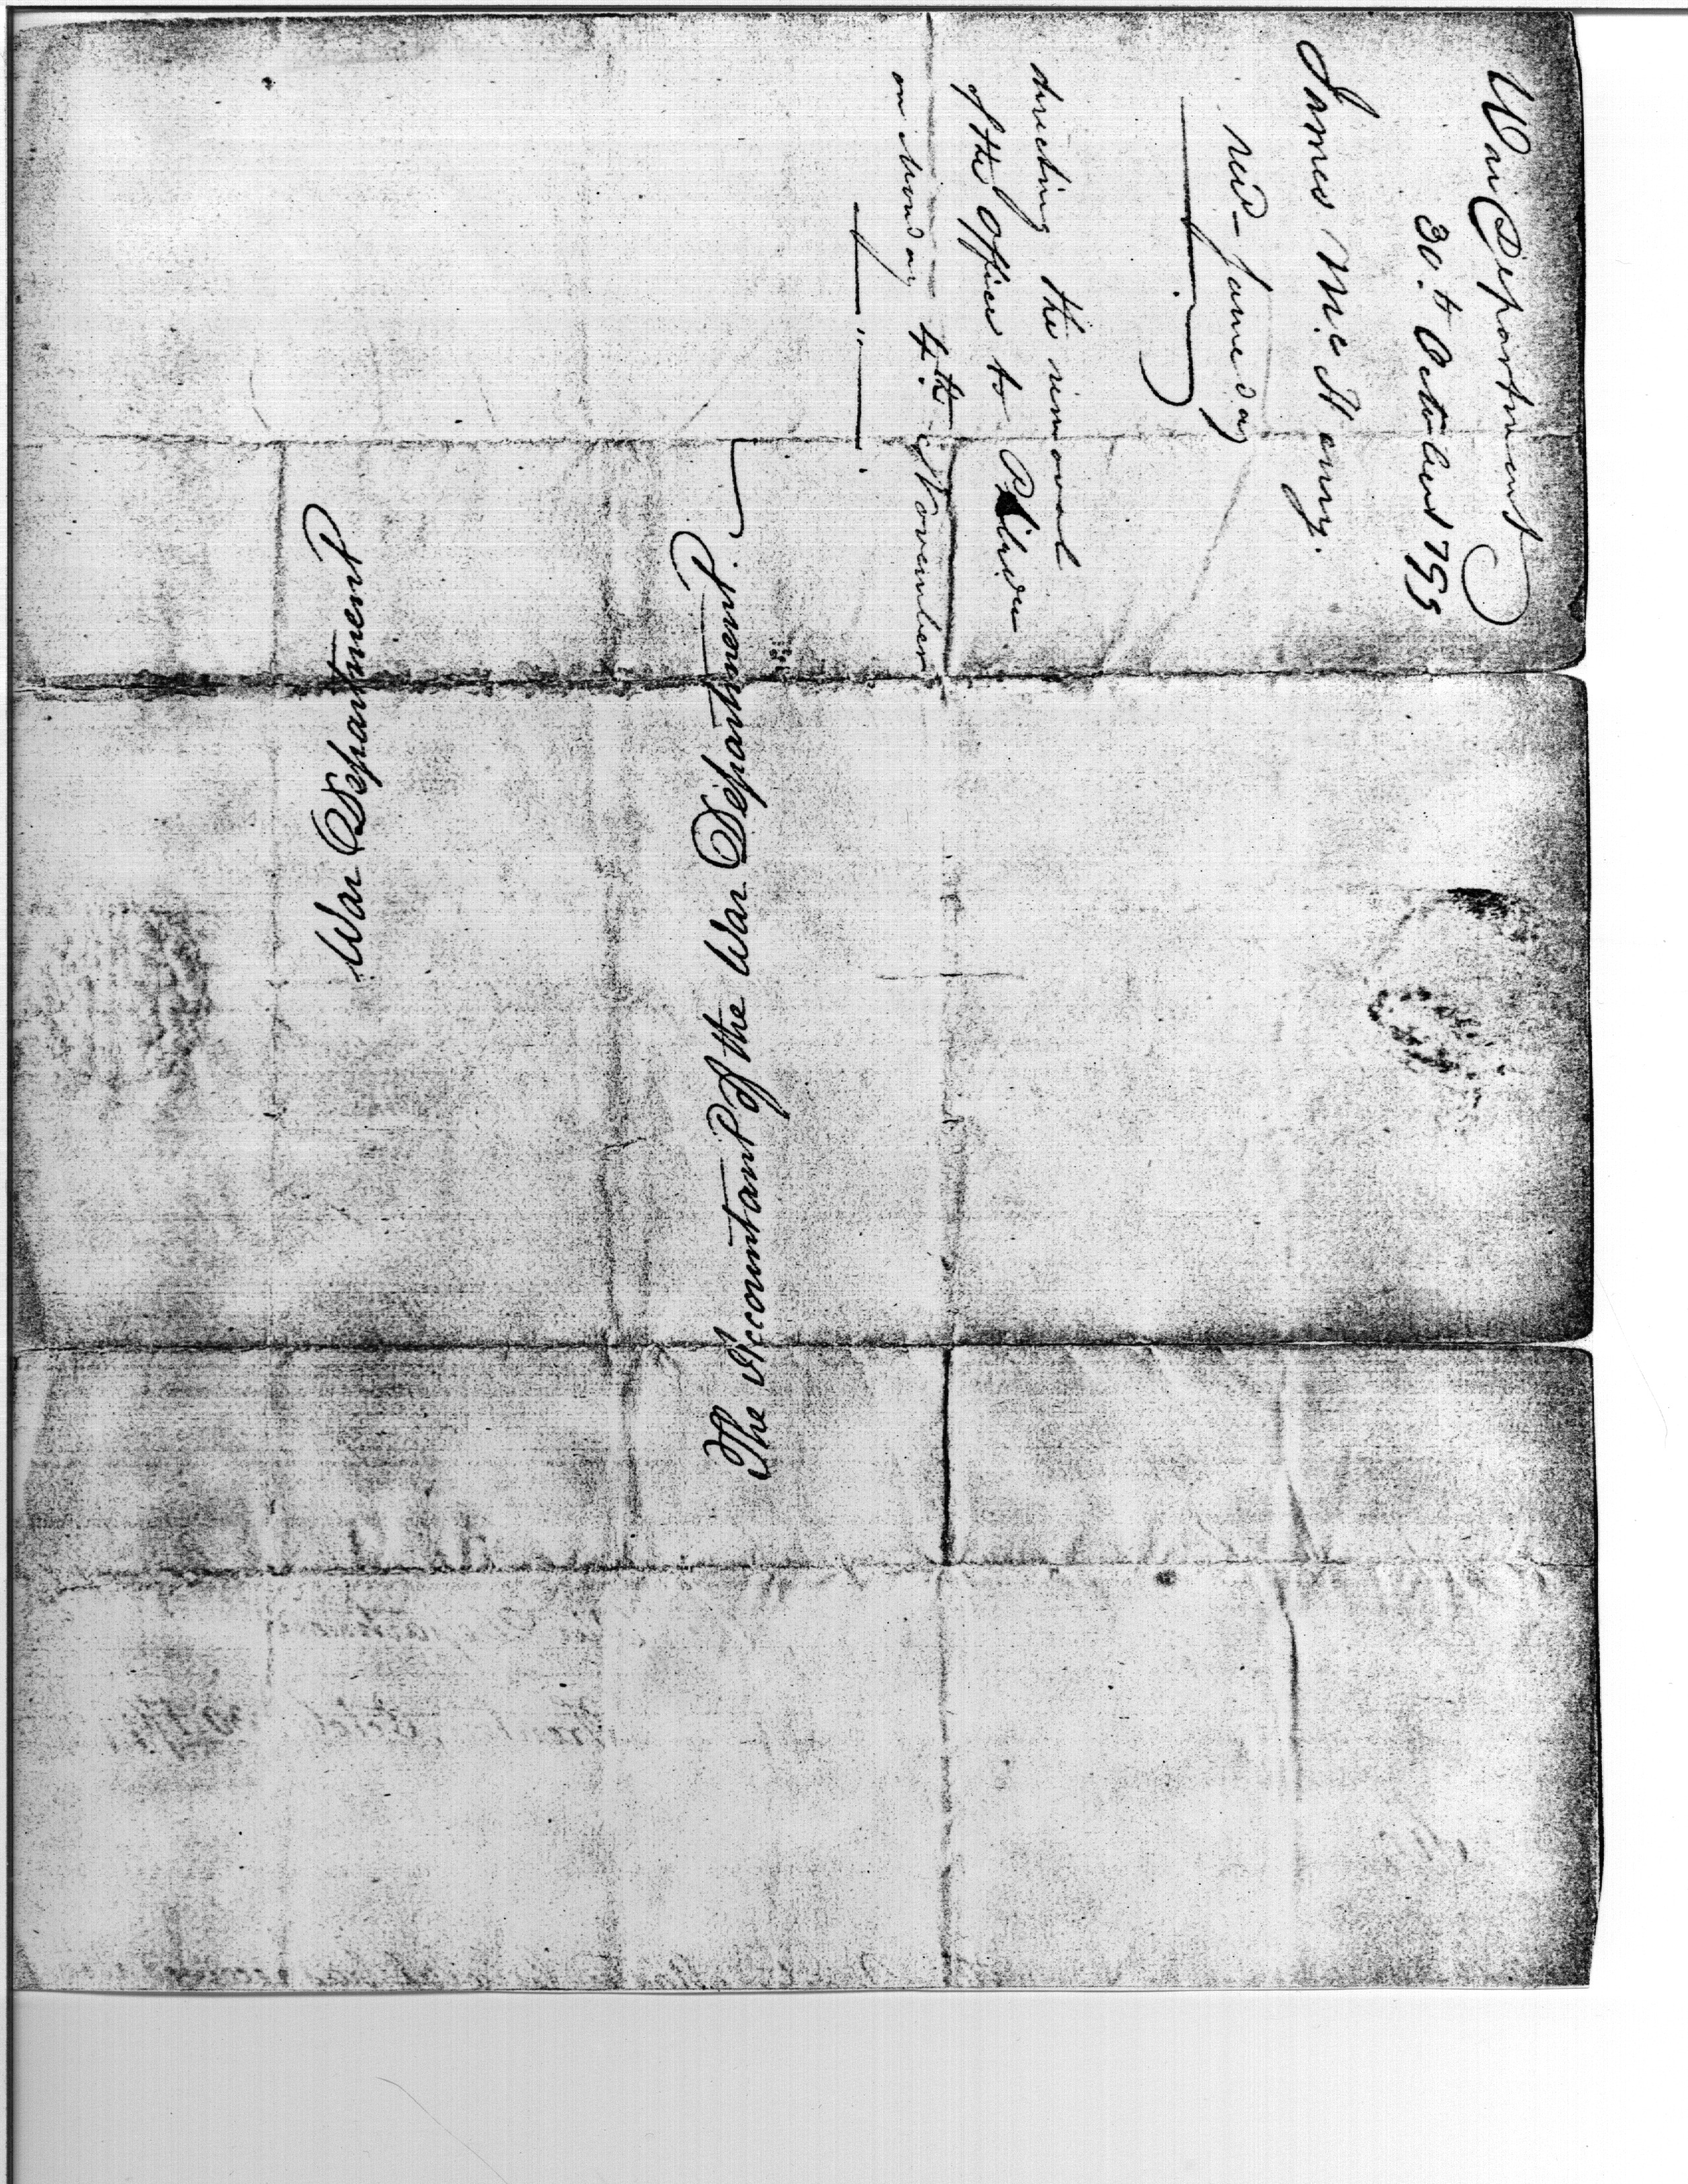 War Department
30.th October 1799
James McHenry.
recd - same day
directing the removal
of the office to Philada
on Monday 4.th November
War Department
The Accountant of the War Department.